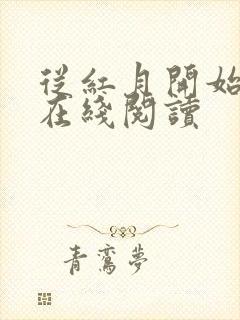 從紅月開始
在綫閱讀
青鸞夢